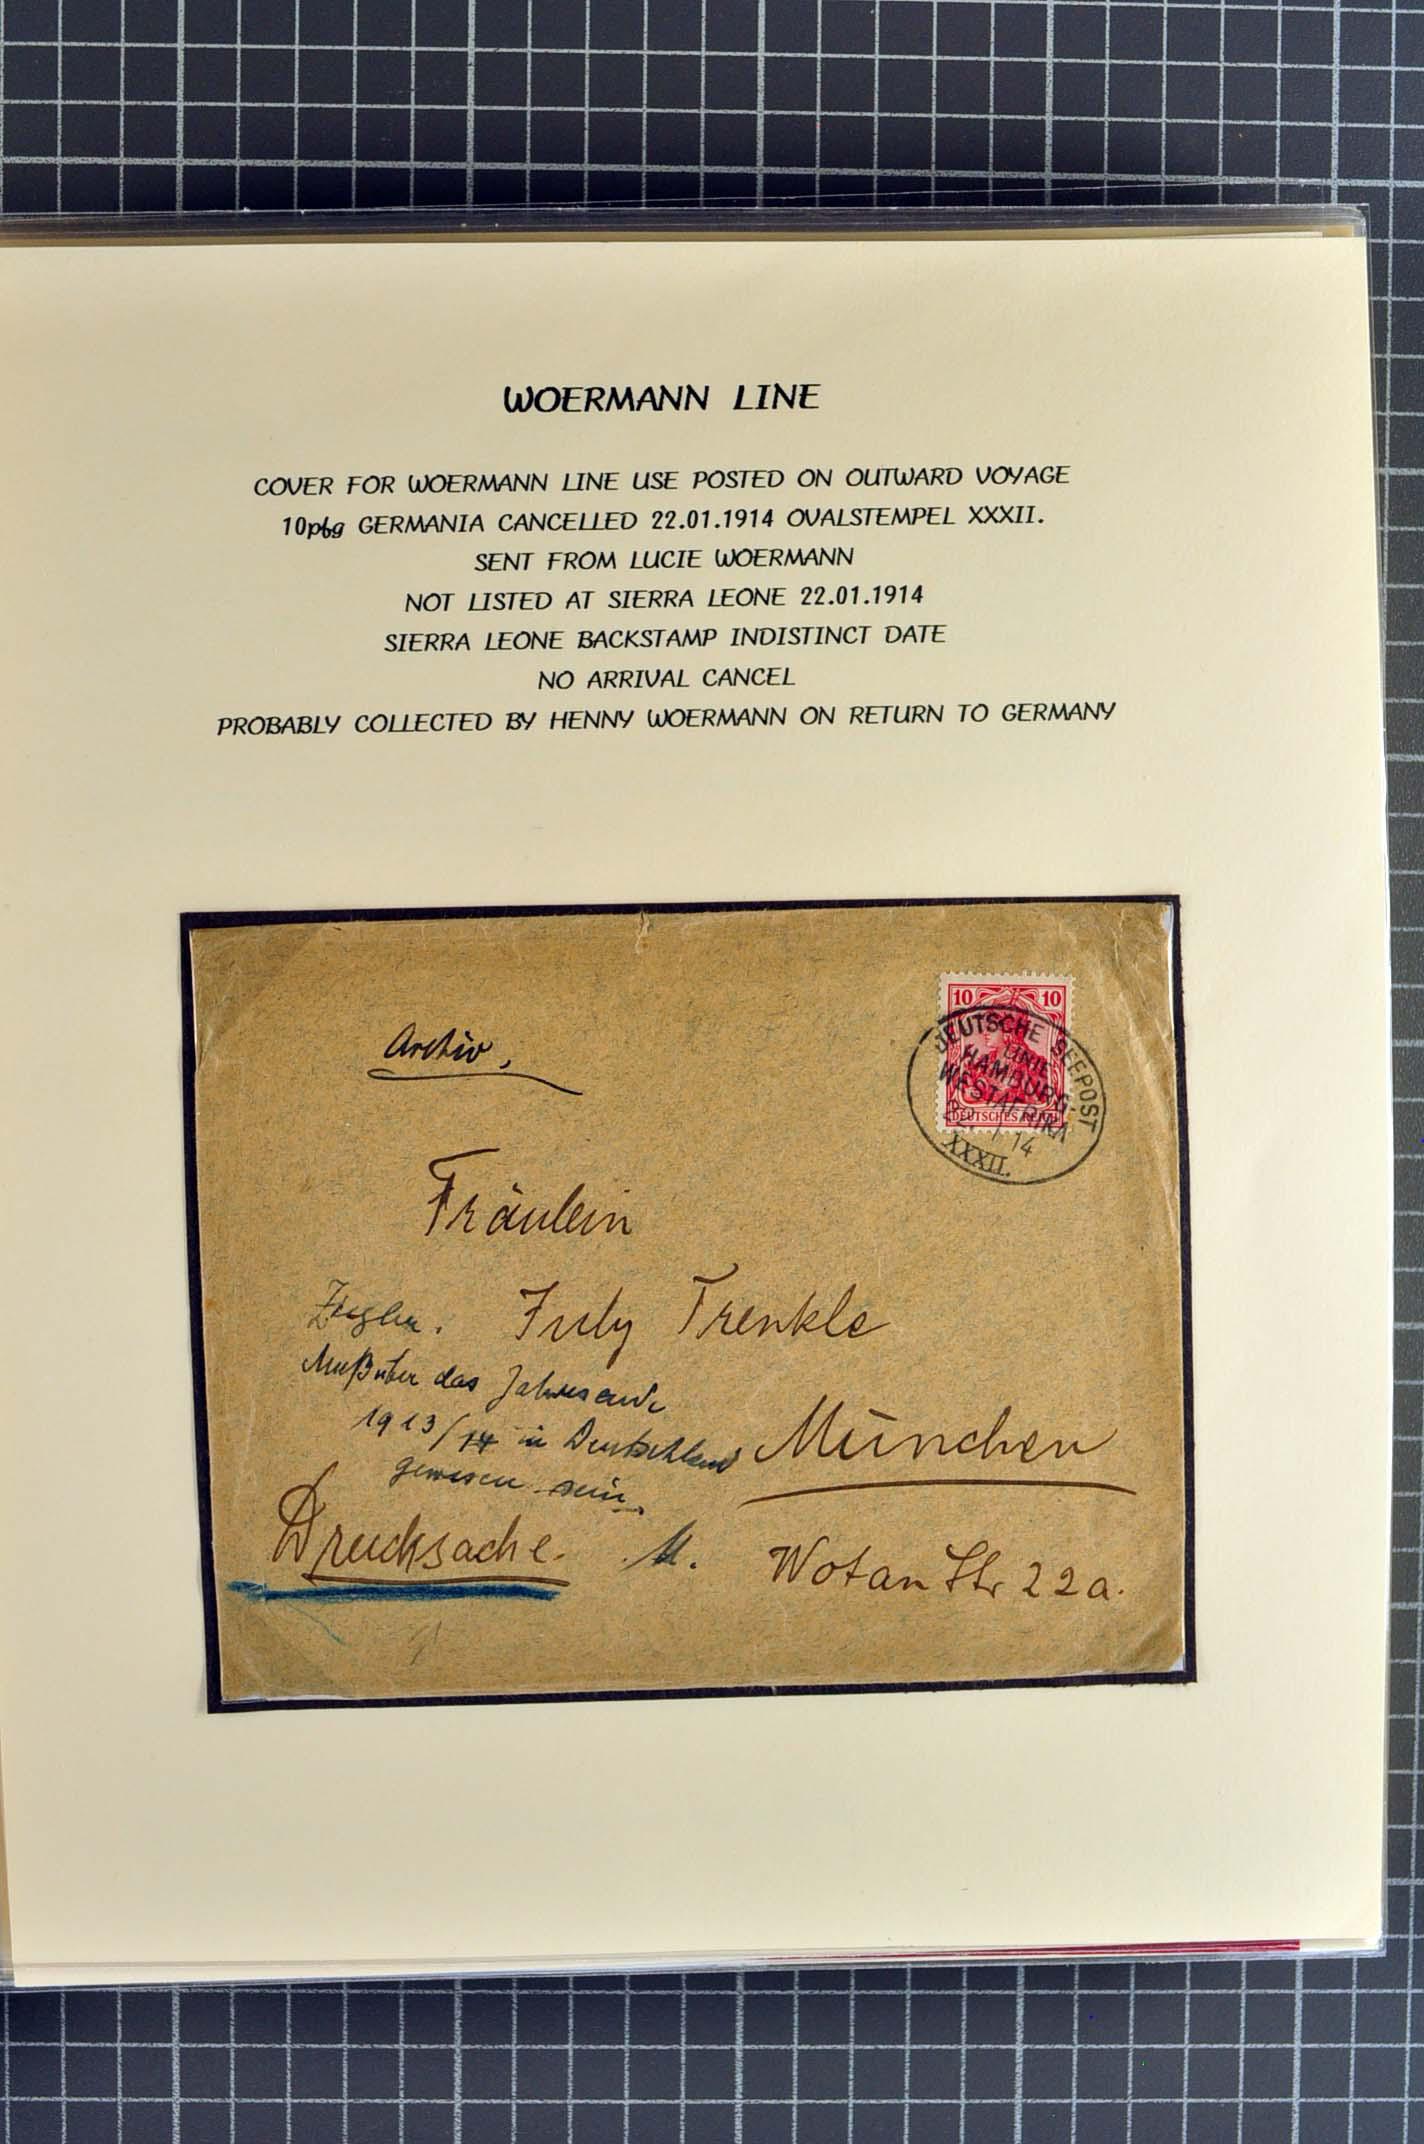 WOERMANN LINE
COVER FOR WOERMANN LINE USE POSTED ON OUTWARD VOYAGE
10pfg GERMANIA CANCELLED 22.01.1914 OVALSTEMPEL XXXII.
SENT FROM LUCIE WOERMANN
NOT LISTED AT SIERRA LEONE 22.01.1914
SIERRA LEONE BACKSTAMP INDISTINCT DATE
NO ARRIVAL CANCEL
PROBABLY COLLECTED BY HENNY WOERMANN ON RETURN TO GERMANY
10 10
DEUTSCHES REICH
DEUTSCHE SEEPOST
LINIE
HAMBURG,
WESTAFRIKA
22. 1 14
XXXII.
Archiv,
Fräulein
July Trenkle
Ziegler.
Muß über das Jahresende
1913/14 in Deutschland
gewesen sein.
München
Drucksache. M.
Wotan Str 22a.